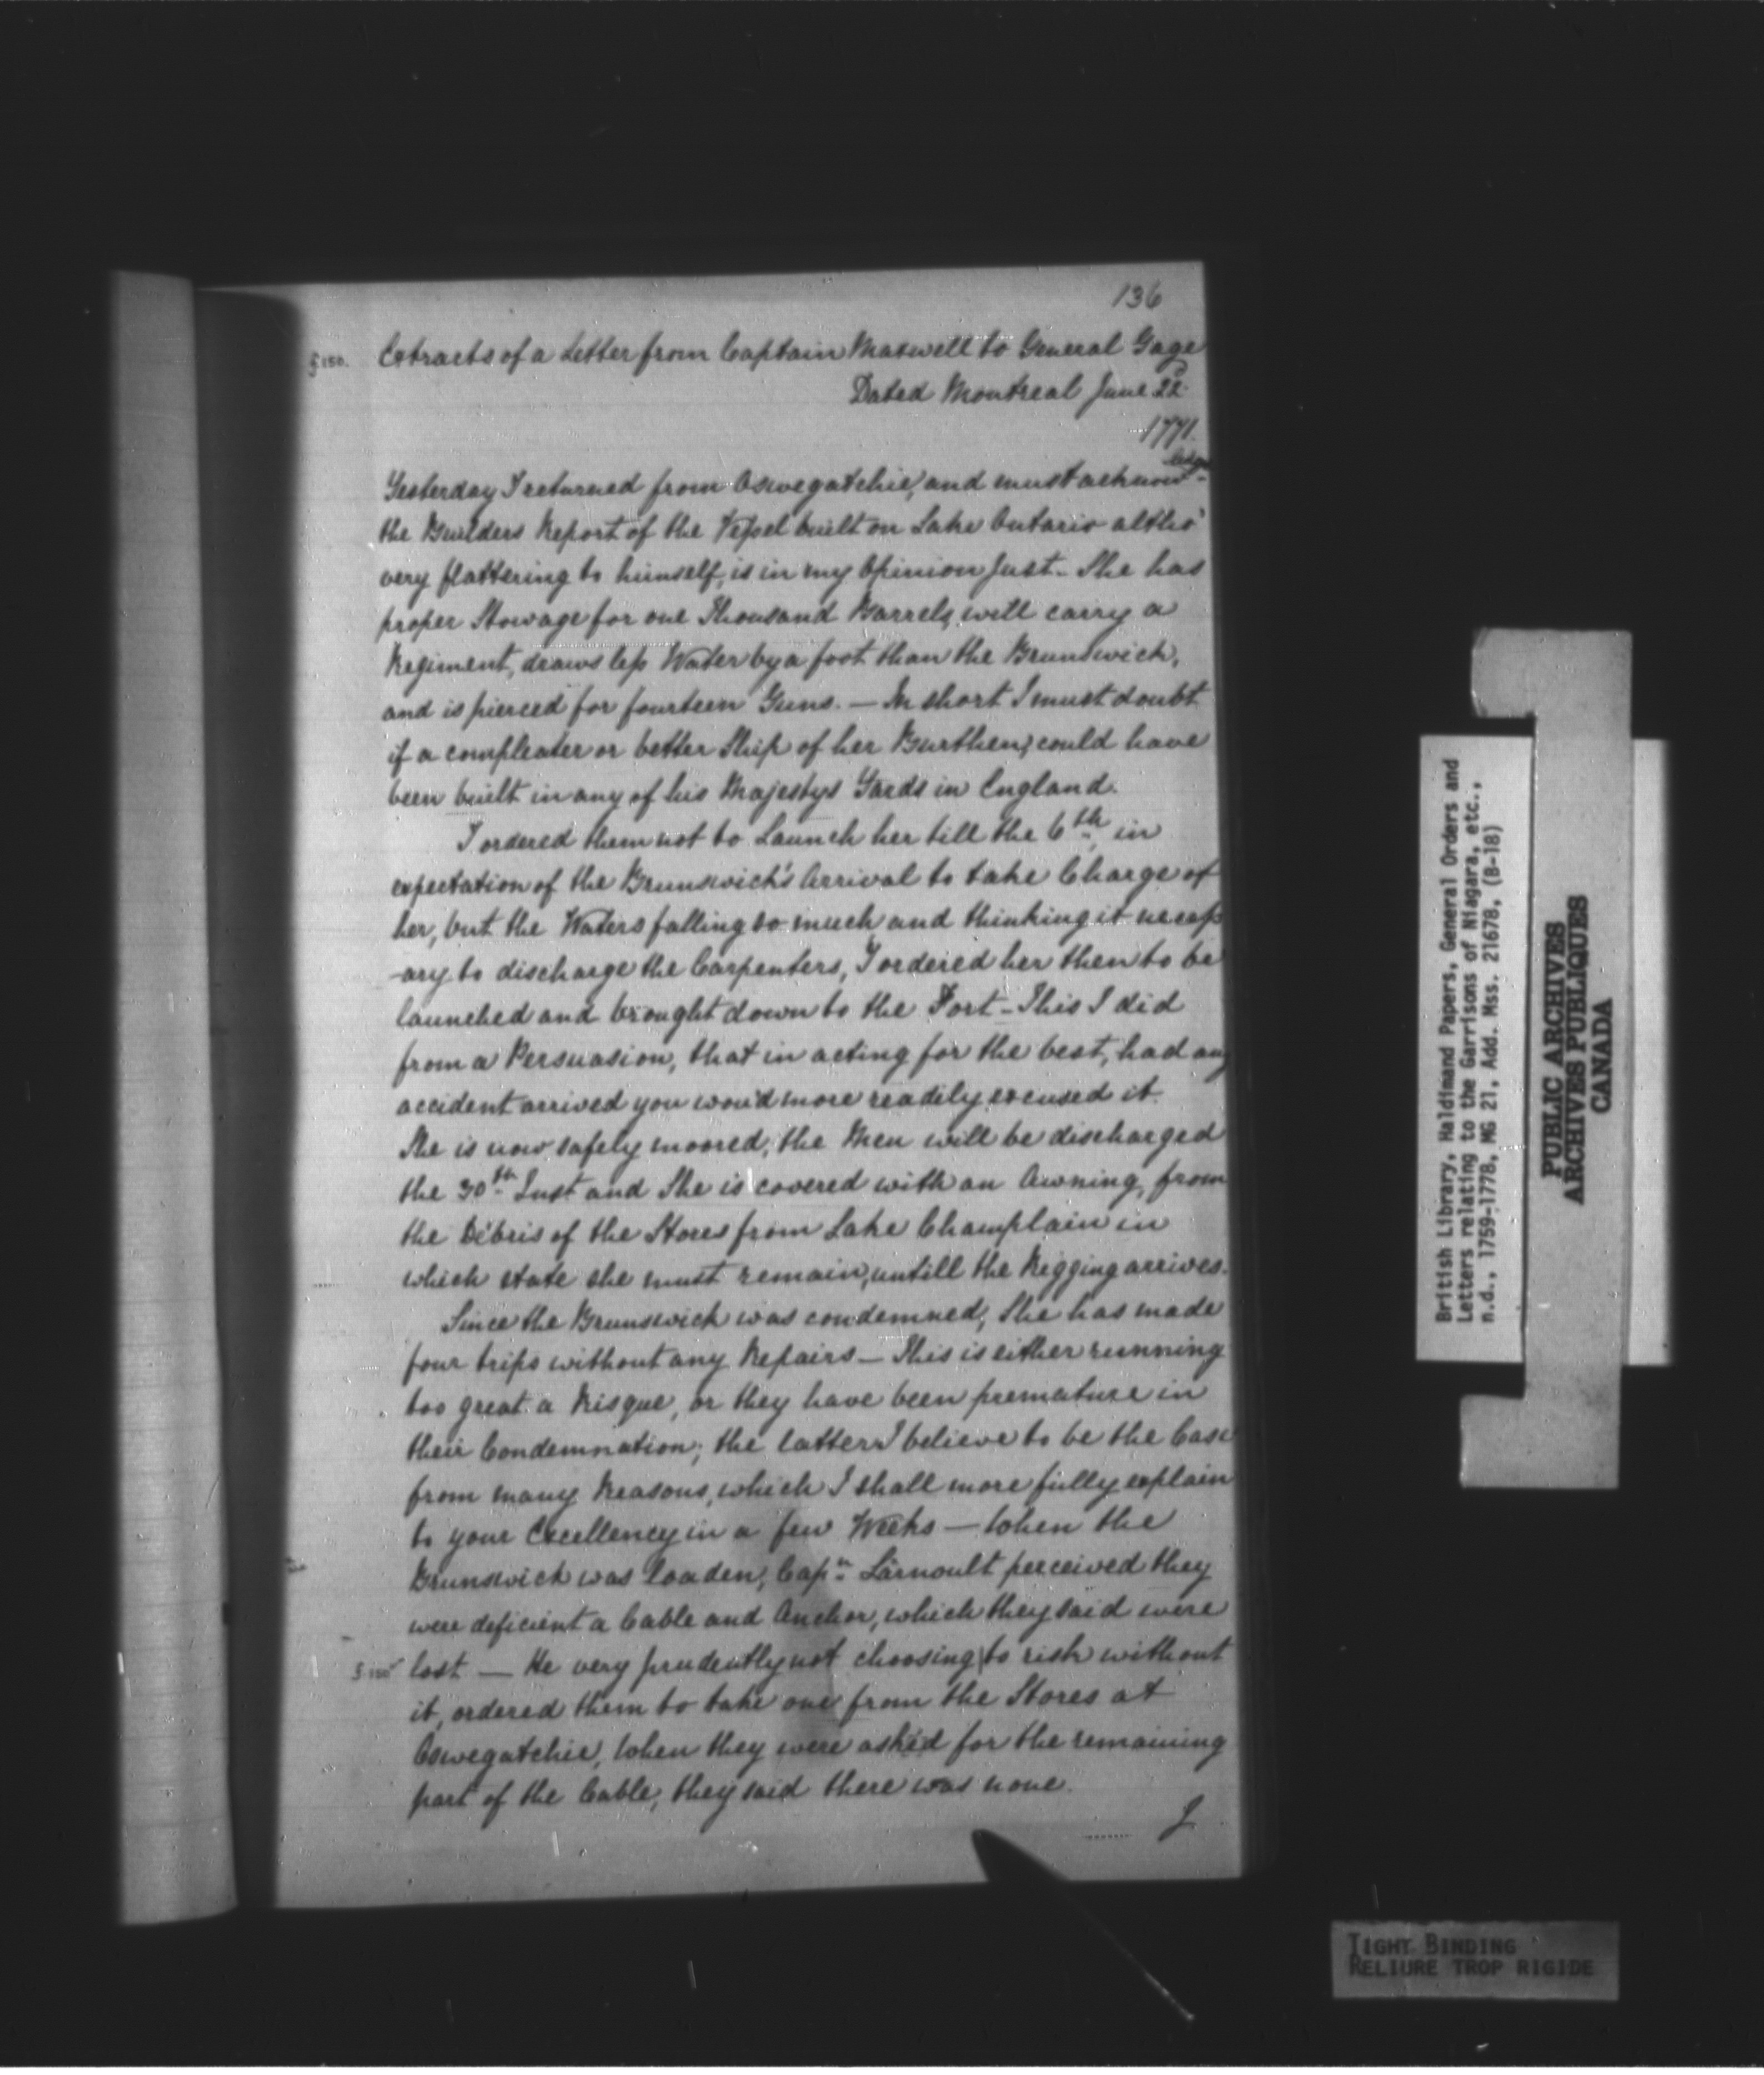 136
f 150. Extracts of a Letter from Captain Maxwell to General Gage
Dated Montreal June 22d
1771.
Yesterday I returned from Oswegatchie, and must acknow-ledge
the Builders Report of the Vessel built on Lake Ontario altho'
very flattering to himself, is in my Opinion Just - She has
proper Stowage for one Thousand Barrels, will carry a
Regiment, draws less Water by a foot than the Brunswick,
and is pierced for fourteen Guns. — In short I must doubt
if a compleater or better Ship of her Burthen, could have
been built in any of his Majestys Yards in England.
I ordered them not to Launch her till the 6th in
expectation of the Brunswick's Arrival to take Charge of
her, but the Waters falling so much and thinking it necess
-ary to discharge the Carpenters, I ordered her then to be
launched and brought down to the Fort - This I did
from a Persuasion, that in acting for the best, had any
accident arrived you wou'd more readily excused it
She is now safely moored, the Men will be discharged
the 30th Inst and She is covered with an Awning, from
the Débris of the Stores from Lake Champlain in
which state she must remain, untill the Rigging arrives.
Since the Brunswick was condemned, She has made
four trips without any Repairs — This is either running
too great a Risque, or they have been premature in
their Condemnation; the latter I believe to be the Case
from many Reasons, which I shall more fully explain
to your Excellency in a few Weeks — When the
Brunswick was loaden, Capn Larnoult perceived they
were deficient a Cable and Anchor, which they said were
f 150v lost — He very prudently not choosing to risk without
it, ordered them to take one from the Stores at
Oswegatchie, When they were ask'd for the remaining
part of the Cable, they said there was none.
I
British Library, Haldimand Papers, General Orders and
Letters relating to the Garrisons of Niagara, etc.,
n.d., 1759-1778, MG 21, Add. Mss. 21678, (B-18)
PUBLIC ARCHIVES
ARCHIVES PUBLIQUES
CANADA
TIGHT BINDING
RELIURE TROP RIGIDE